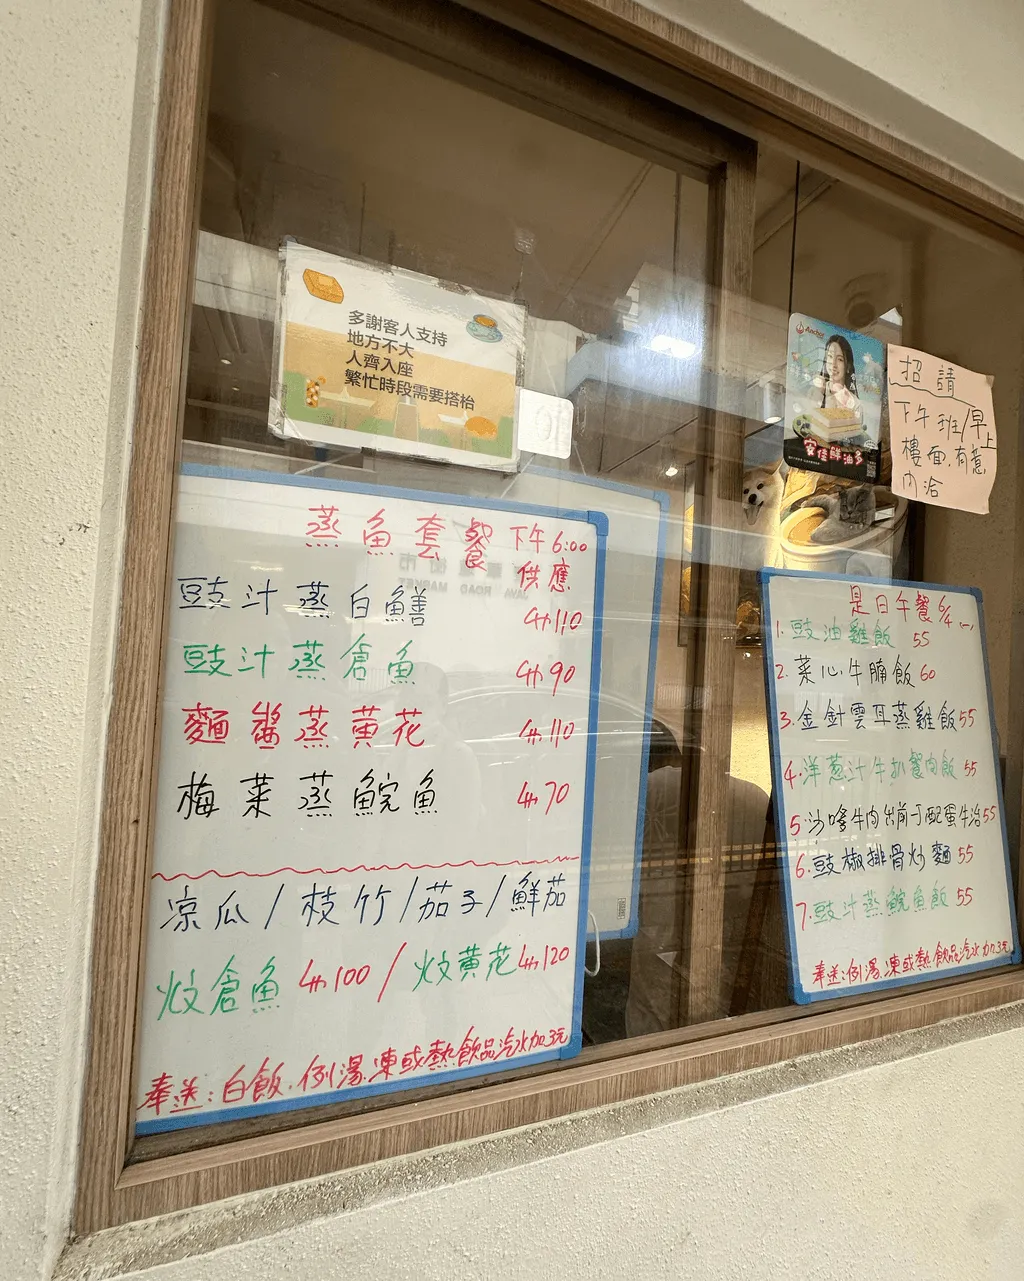 多謝客人支持
地方不大
人齊入座
繁忙時段需要搭枱
Anchor
安佳鮮油多
招請
下午班/早上
樓面.有意
內洽
蒸魚套餐 下午6:00
供應
豉汁蒸白鱔 110
豉汁蒸倉魚 90
麵醬蒸黄花 110
梅菜蒸鯇魚 70
凉瓜/枝竹/茄子/鮮茄
炆倉魚 100/炆黄花 120
奉送:白飯.例湯.凍或熱飲品汽水加3元
JAVA ROAD MARKET
是日午餐 6/4 (一)
1.豉油雞飯 55
2.菜心牛腩飯 60
3.金針雲耳蒸雞飯 55
4.洋葱汁牛扒餐肉飯 55
5.沙嗲牛肉公前丁配蛋牛治 55
6.豉椒排骨炒麵 55
7.豉汁蒸鯇魚飯 55
奉送:例湯.凍或熱飲品汽水加3元